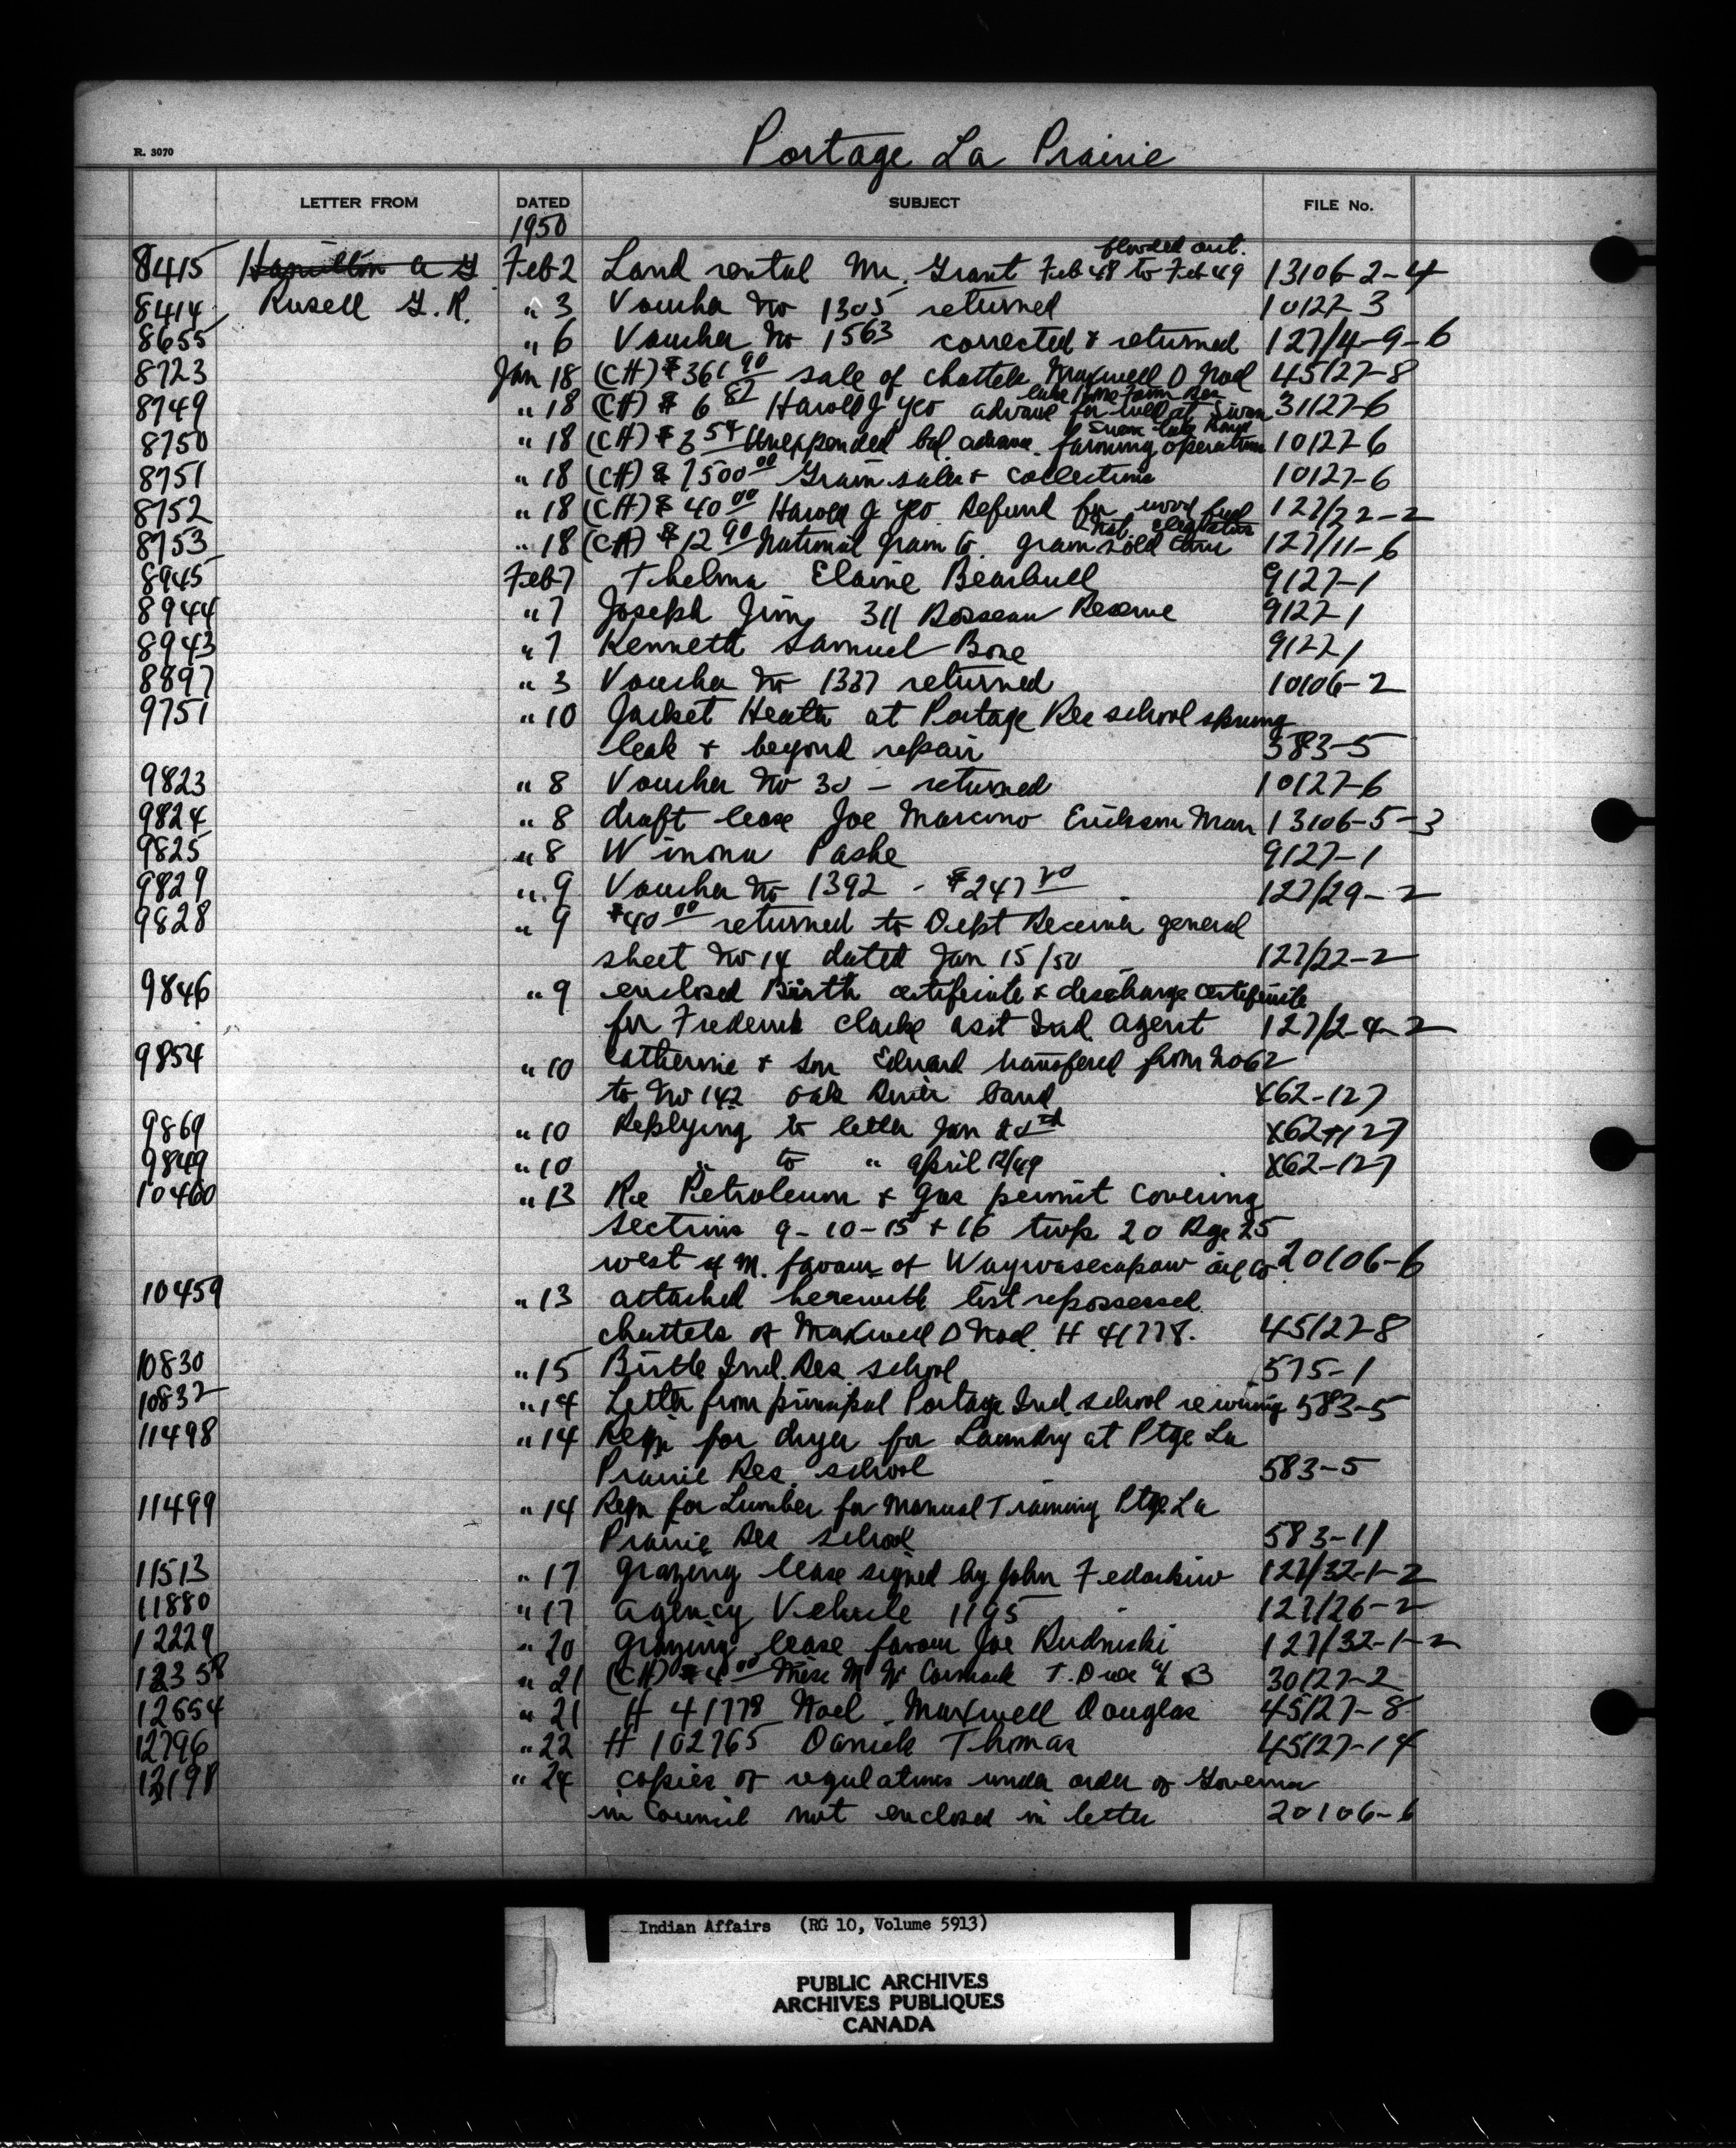 Portage La Prairie
R. 3070
LETTER FROM DATED SUBJECT FILE No.
1950
flooded out.
8415 Hamilton A G Feb 2 Land rental Mr. Grant Feb 48 to Feb 49 13106-2-4
8414 Rusell G. R. " 3 Voucher No 1305 returned 10127-3
8655 " 6 Voucher No 1563 corrected & returned 127/4-9-6
8723 Jan 18 (CH) $361 90 sale of chattels Maxwell D Noel 45127-8
8749 " 18 (CH) $ 6 82 Harold J Yeo advance for well at Swan 31127-6
8750 " 18 (CH) $ 3 54 Unexpended bal. advance farming operations 10127-6
8751 " 18 (CH) $ 7500 00 Grain sales & collections 10127-6
8752 " 18 (CH) $ 40 00 Harold J Yeo Refund for wood fuel 127/22-2
Nat. elevators
8753 " 18 (CH) $12 90 National Grain Co. grain sold thru 127/11-6
8945 Feb 7 Thelma Elaine Bearbull 9127-1
8944 " 7 Joseph Jim 311 Rosseau Reserve 9127-1
8943 " 7 Kenneth Samuel Bone 9127 1
8897 " 3 Voucher No 1337 returned 10106-2
9751 " 10 Jacket Heater at Portage Res school sprung
leak & beyond repair 583-5
9823 " 8 Voucher No 30 - returned 10127-6
9824 " 8 draft lease Joe Marcino Erickson Man 13106-5-3
9825 " 8 Winona Pashe 9127-1
9829 " 9 Voucher No 1392 - $247 20 127/29-2
9828 " 9 $40 00 returned to Dept Receiver general
sheet No 14 dated Jan 15/50 127/22-2
9846 " 9 enclosed Birth certificate & discharge certificate
for Frederick Clarke asst Ind. Agent 127/2-4-2
9854 " 10 Catherine & son Edward transfered from No 62
to No 142 Oak River band X62-127
9869 " 10 Replying to letter Jan X62-127
9849 " 10 " to " April 12/49 X62-127
10460 " 13 Re Petroleum & gas permit covering
sections 9-10-15 & 16 twp 20 Rge 25
west of M. favour of Waywasecapow oil Co 20106-6
10459 " 13 attached herewith list repossessed
chattels of Maxwell D Noel. H 41778. 45127-8
10830 " 15 Birtle Ind. Res. school 575-1
10832 " 14 Letter from principal Portage Ind. school re wiring 583-5
11498 " 14 Reqn for dryer for Laundry at Ptge La
Prairie Res. school 583-5
11499 " 14 Reqn for Lumber for Manual Training Ptge La
Prairie Res school 583-11
11513 " 17 grazing lease signed by John Fedorkiw 127/32-1-2
11880 " 17 agency Vehicle 1195 127/26-2
12229 " 20 grazing lease favour Joe Rudniski 127/32-1-2
12358 " 21 (CH) $ 4 00 Miss M Mc Cormack 30127-2
12654 " 21 H 41778 Noel Maxwell Douglas 45127-8
12796 " 22 H 102765 Daniels Thomas 45127-14
13198 " 24 copies of regulations under order of Governor
in Council not enclosed in letter 20106-6
Indian Affairs (RG 10, Volume 5913)
PUBLIC ARCHIVES
ARCHIVES PUBLIQUES
CANADA